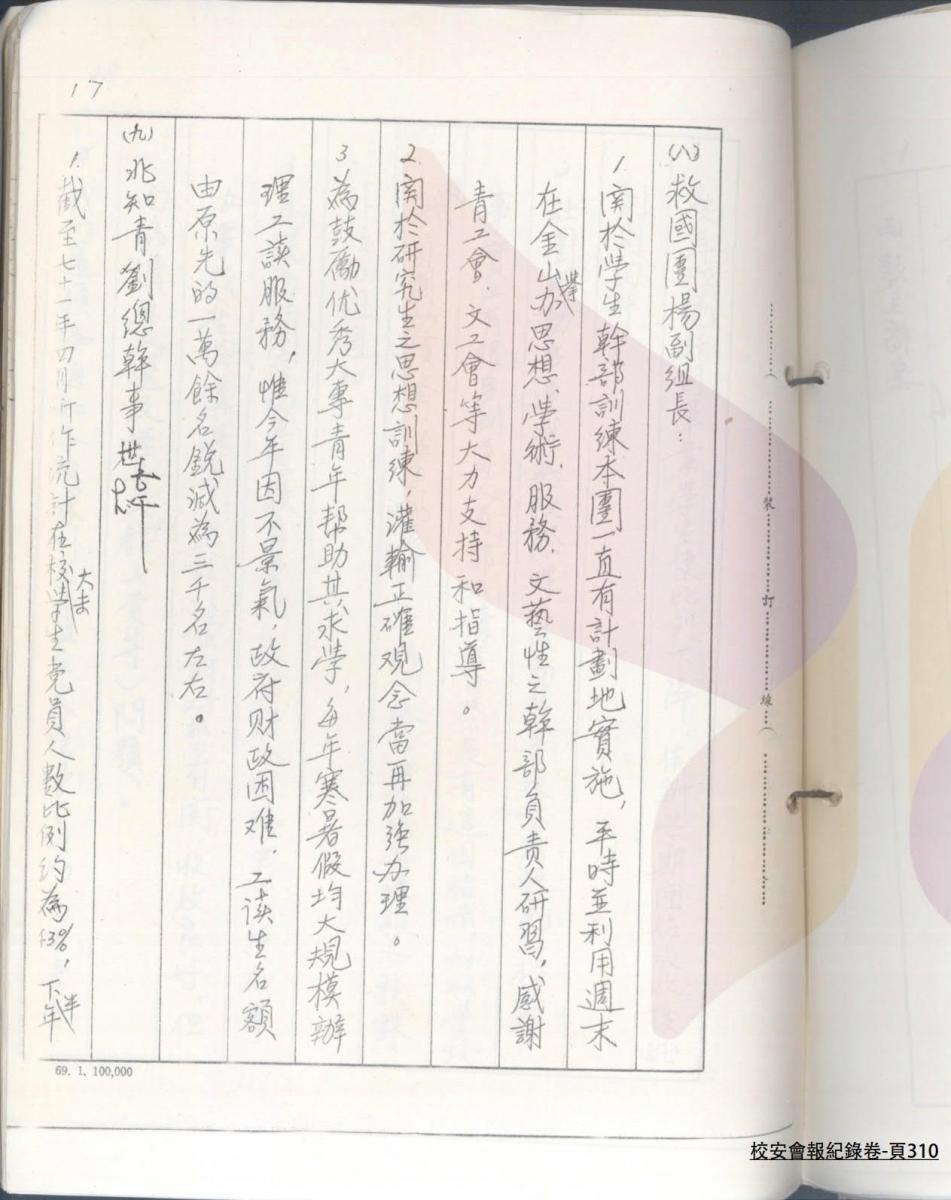 17
(八)救國團楊副組長：
1.關於學生幹部訓練本團一直有計劃地實施，平時並利用週末
在金山舉办思想、學術、服務、文藝性之幹部負責人研習，感謝
青工會、文工會等大力支持和指導。
2.關於研究生之思想訓練，灌輸正確观念當再加強办理。
3.為鼓勵优秀大專青年帮助其求學，每年寒暑假均大規模辦
理工讀服務，惟今年因不景氣，政府财政困难，工读生名額
由原先的一萬餘名銳減為三千名左右。
(九)北知青劉總幹事
1.截至七十一年四月所作統計在校大專學生党員人數比例約為13%，下半年
裝 訂 線
69. 1. 100,000
校安會報紀錄卷-頁310